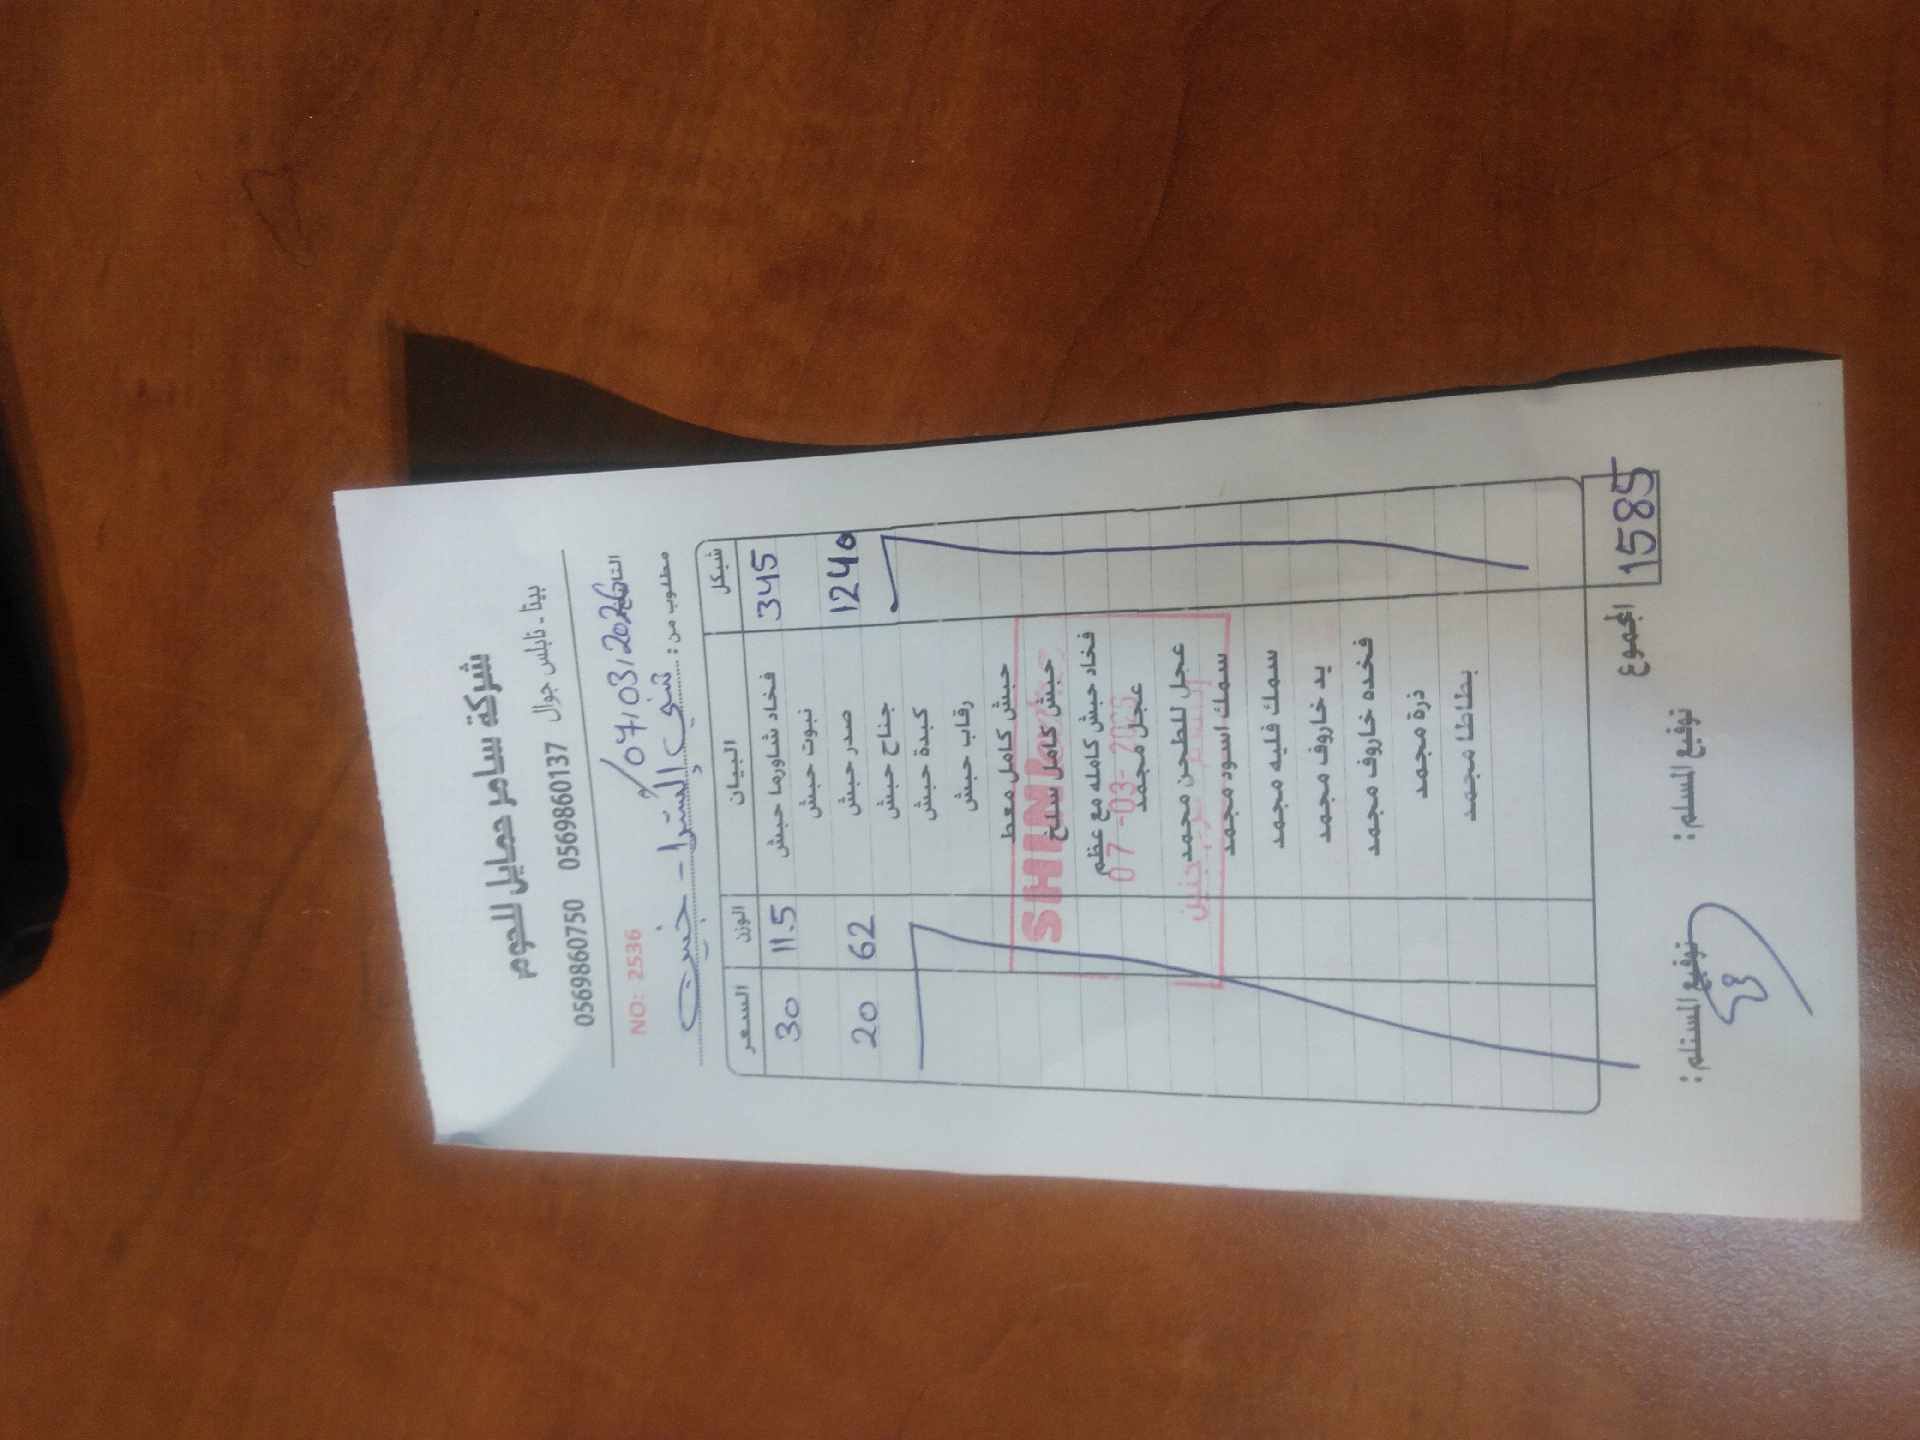 شركة سامر حمايل للحوم
بيتا - نابلس جوال 0569860137 0569860750
التاريخ 07/03/2026
NO: 2536
مطلوب من: شني إكسترا - جنين
السعر الوزن البيان شيكل
30 11.5 فخاد شاورما حبش 345
نبوت حبش
20 62 صدر حبش 1240
جناح حبش
كبدة حبش
رقاب حبش
حبش كامل معط
حبش كامل سلخ
فخاد حبش كامله مع عظم
عجل مجمد
عجل للطحن مجمد
سمك اسود مجمد
سمك فليه مجمد
يد خاروف مجمد
فخده خاروف مجمد
ذرة مجمد
بطاطا مجمد
SHINI
07-03-2026
جنين
المجموع 1585
توقيع المستلم: توقيع المسلم: